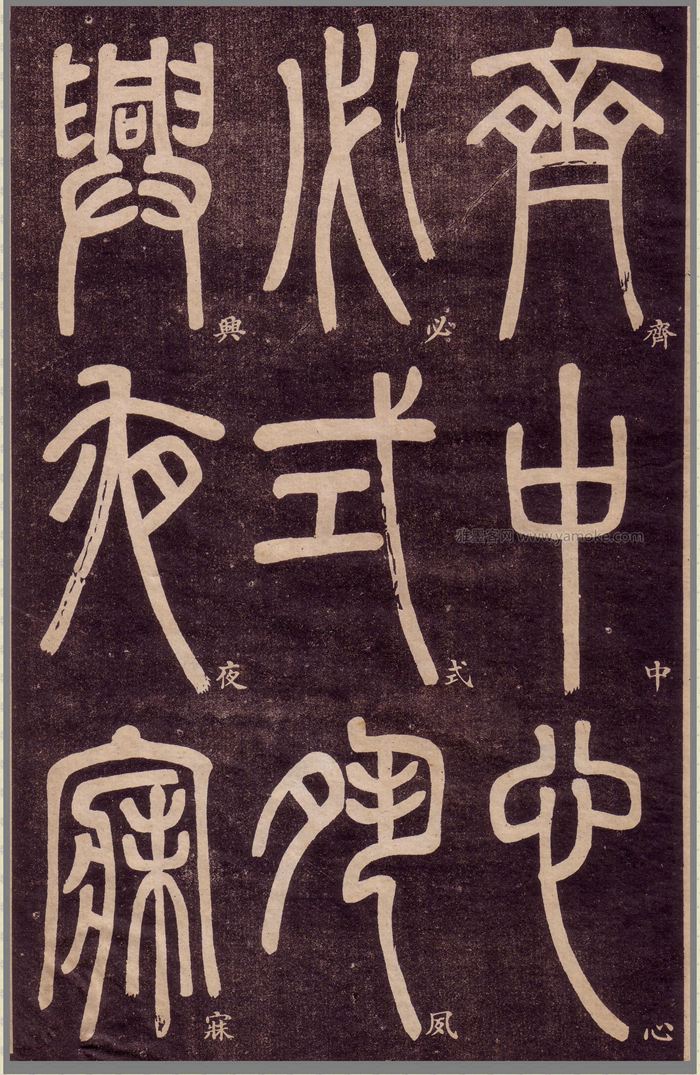 齊中心
齊中心
必式夙
必式夙
興夜寐
興夜寐
雅墨客网 www.yamoke.com